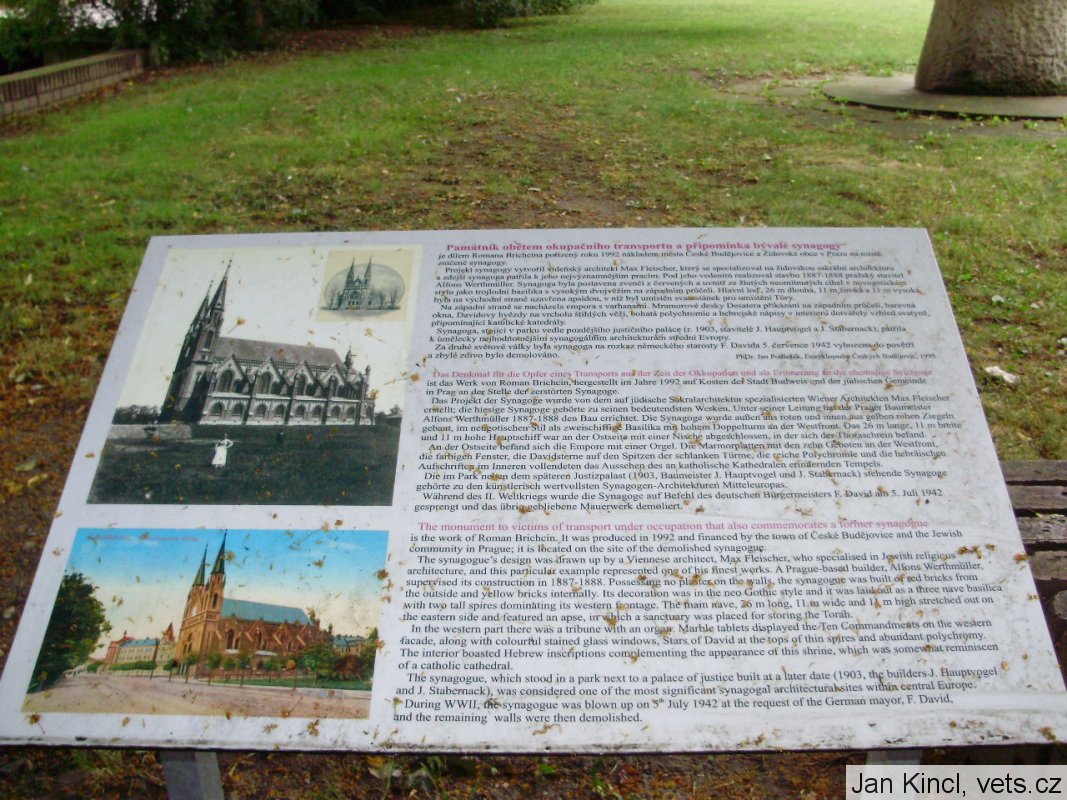 Památník obětem okupačního transportu a připomínka bývalé synagogy
je dílem Romana Brichcína pořízený roku 1992 nákladem města České Budějovice a Židovské obce v Praze na místě
zničené synagogy.
Projekt synagogy vytvořil vídeňský architekt Max Fleischer, který se specializoval na židovskou sakrální architekturu
a zdejší synagoga patřila k jeho nejvýznamnějším pracím. Pod jeho vedením realizoval stavbu 1887-1888 pražský stavitel
Alfons Werthmüller. Synagoga byla postavena zvenčí z červených a uvnitř ze žlutých neomítnutých cihel v novogotickém
stylu jako trojlodní bazilika s vysokým dvojvěžím na západním průčelí. Hlavní loď, 26 m dlouhá, 11 m široká a 11 m vysoká,
byla na východní straně uzavřena apsidou, v níž byl umístěn svatostánek pro umístění Tóry.
Na západní straně se nacházela empora s varhanami. Mramorové desky Desatera přikázání na západním průčelí, barevná
okna, Davidovy hvězdy na vrcholu štíhlých věží, bohatá polychromie a hebrejské nápisy v interieru dotvářely vzhled svatyně,
připomínající katolické katedrály.
Synagoga, stojící v parku vedle pozdějšího justičního paláce (r. 1903, stavitelé J. Hauptvogel a J. Stabernack), patřila
k umělecky nejhodnotnějším synagogálním architekturám střední Evropy.
Za druhé světové války byla synagoga na rozkaz německého starosty F. Davida 5. července 1942 vyhozena do povětří
a zbylé zdivo bylo demolováno.
PhDr. Jan Podlešák, Encyklopedie Českých Budějovic, 1998
Das Denkmal für die Opfer eines Transports aus der Zeit der Okkupation und als Erinnerung an die ehemalige Synagoge
ist das Werk von Roman Brichcín, hergestellt im Jahre 1992 auf Kosten der Stadt Budweis und der jüdischen Gemeinde
in Prag an der Stelle der zerstörten Synagoge.
Das Projekt der Synagoge wurde von dem auf jüdische Sakralarchitektur spezialisierten Wiener Architekten Max Fleischer
erstellt; die hiesige Synagoge gehörte zu seinen bedeutendsten Werken. Unter seiner Leitung hat der Prager Baumeister
Alfons Werthmüller 1887-1888 den Bau errichtet. Die Synagoge wurde außen aus roten und innen aus gelben rohen Ziegeln
gebaut, im neugotischen Stil als zweischiffige Basilika mit hohem Doppelturm an der Westfront. Das 26 m lange, 11 m breite
und 11 m hohe Hauptschiff war an der Ostseite mit einer Nische abgeschlossen, in der sich der Thoraschrein befand.
An der Ostseite befand sich die Empore mit einer Orgel. Die Marmorplatten mit den zehn Geboten an der Westfront,
die farbigen Fenster, die Davidsterne auf den Spitzen der schlanken Türme, die reiche Polychromie und die hebräischen
Aufschriften im Inneren vollendeten das Aussehen des an katholische Kathedralen erinnernden Tempels.
Die im Park neben dem späteren Justizpalast (1903, Baumeister J. Hauptvogel und J. Stabernack) stehende Synagoge
gehörte zu den künstlerisch wertvollsten Synagogen-Architekturen Mitteleuropas.
Während des II. Weltkriegs wurde die Synagoge auf Befehl des deutschen Bürgermeisters F. David am 5. Juli 1942
gesprengt und das übrig gebliebene Mauerwerk demoliert.
The monument to victims of transport under occupation that also commemorates a former synagogue
is the work of Roman Brichcín. It was produced in 1992 and financed by the town of České Budějovice and the Jewish
community in Prague; it is located on the site of the demolished synagogue.
The synagogue's design was drawn up by a Viennese architect, Max Fleischer, who specialised in Jewish religious
architecture, and this particular example represented one of his finest works. A Prague-based builder, Alfons Werthmüller,
supervised its construction in 1887-1888. Possessing no plaster on the walls, the synagogue was built of red bricks from
the outside and yellow bricks internally. Its decoration was in the neo Gothic style and it was laid out as a three nave basilica
with two tall spires dominating its western frontage. The main nave, 26 m long, 11 m wide and 11 m high stretched out on
the eastern side and featured an apse, in which a sanctuary was placed for storing the Torah.
In the western part there was a tribune with an organ. Marble tablets displayed the Ten Commandments on the western
facade, along with colourful stained glass windows, Stars of David at the tops of thin spires and abundant polychromy.
The interior boasted Hebrew inscriptions complementing the appearance of this shrine, which was somewhat reminiscen
of a catholic cathedral.
The synagogue, which stood in a park next to a palace of justice built at a later date (1903, the builders J. Hauptvogel
and J. Stabernack), was considered one of the most significant synagogal architectural sites within central Europe.
During WWII, the synagogue was blown up on 5th July 1942 at the request of the German mayor, F. David,
and the remaining walls were then demolished.
Jan Kincl, vets.cz